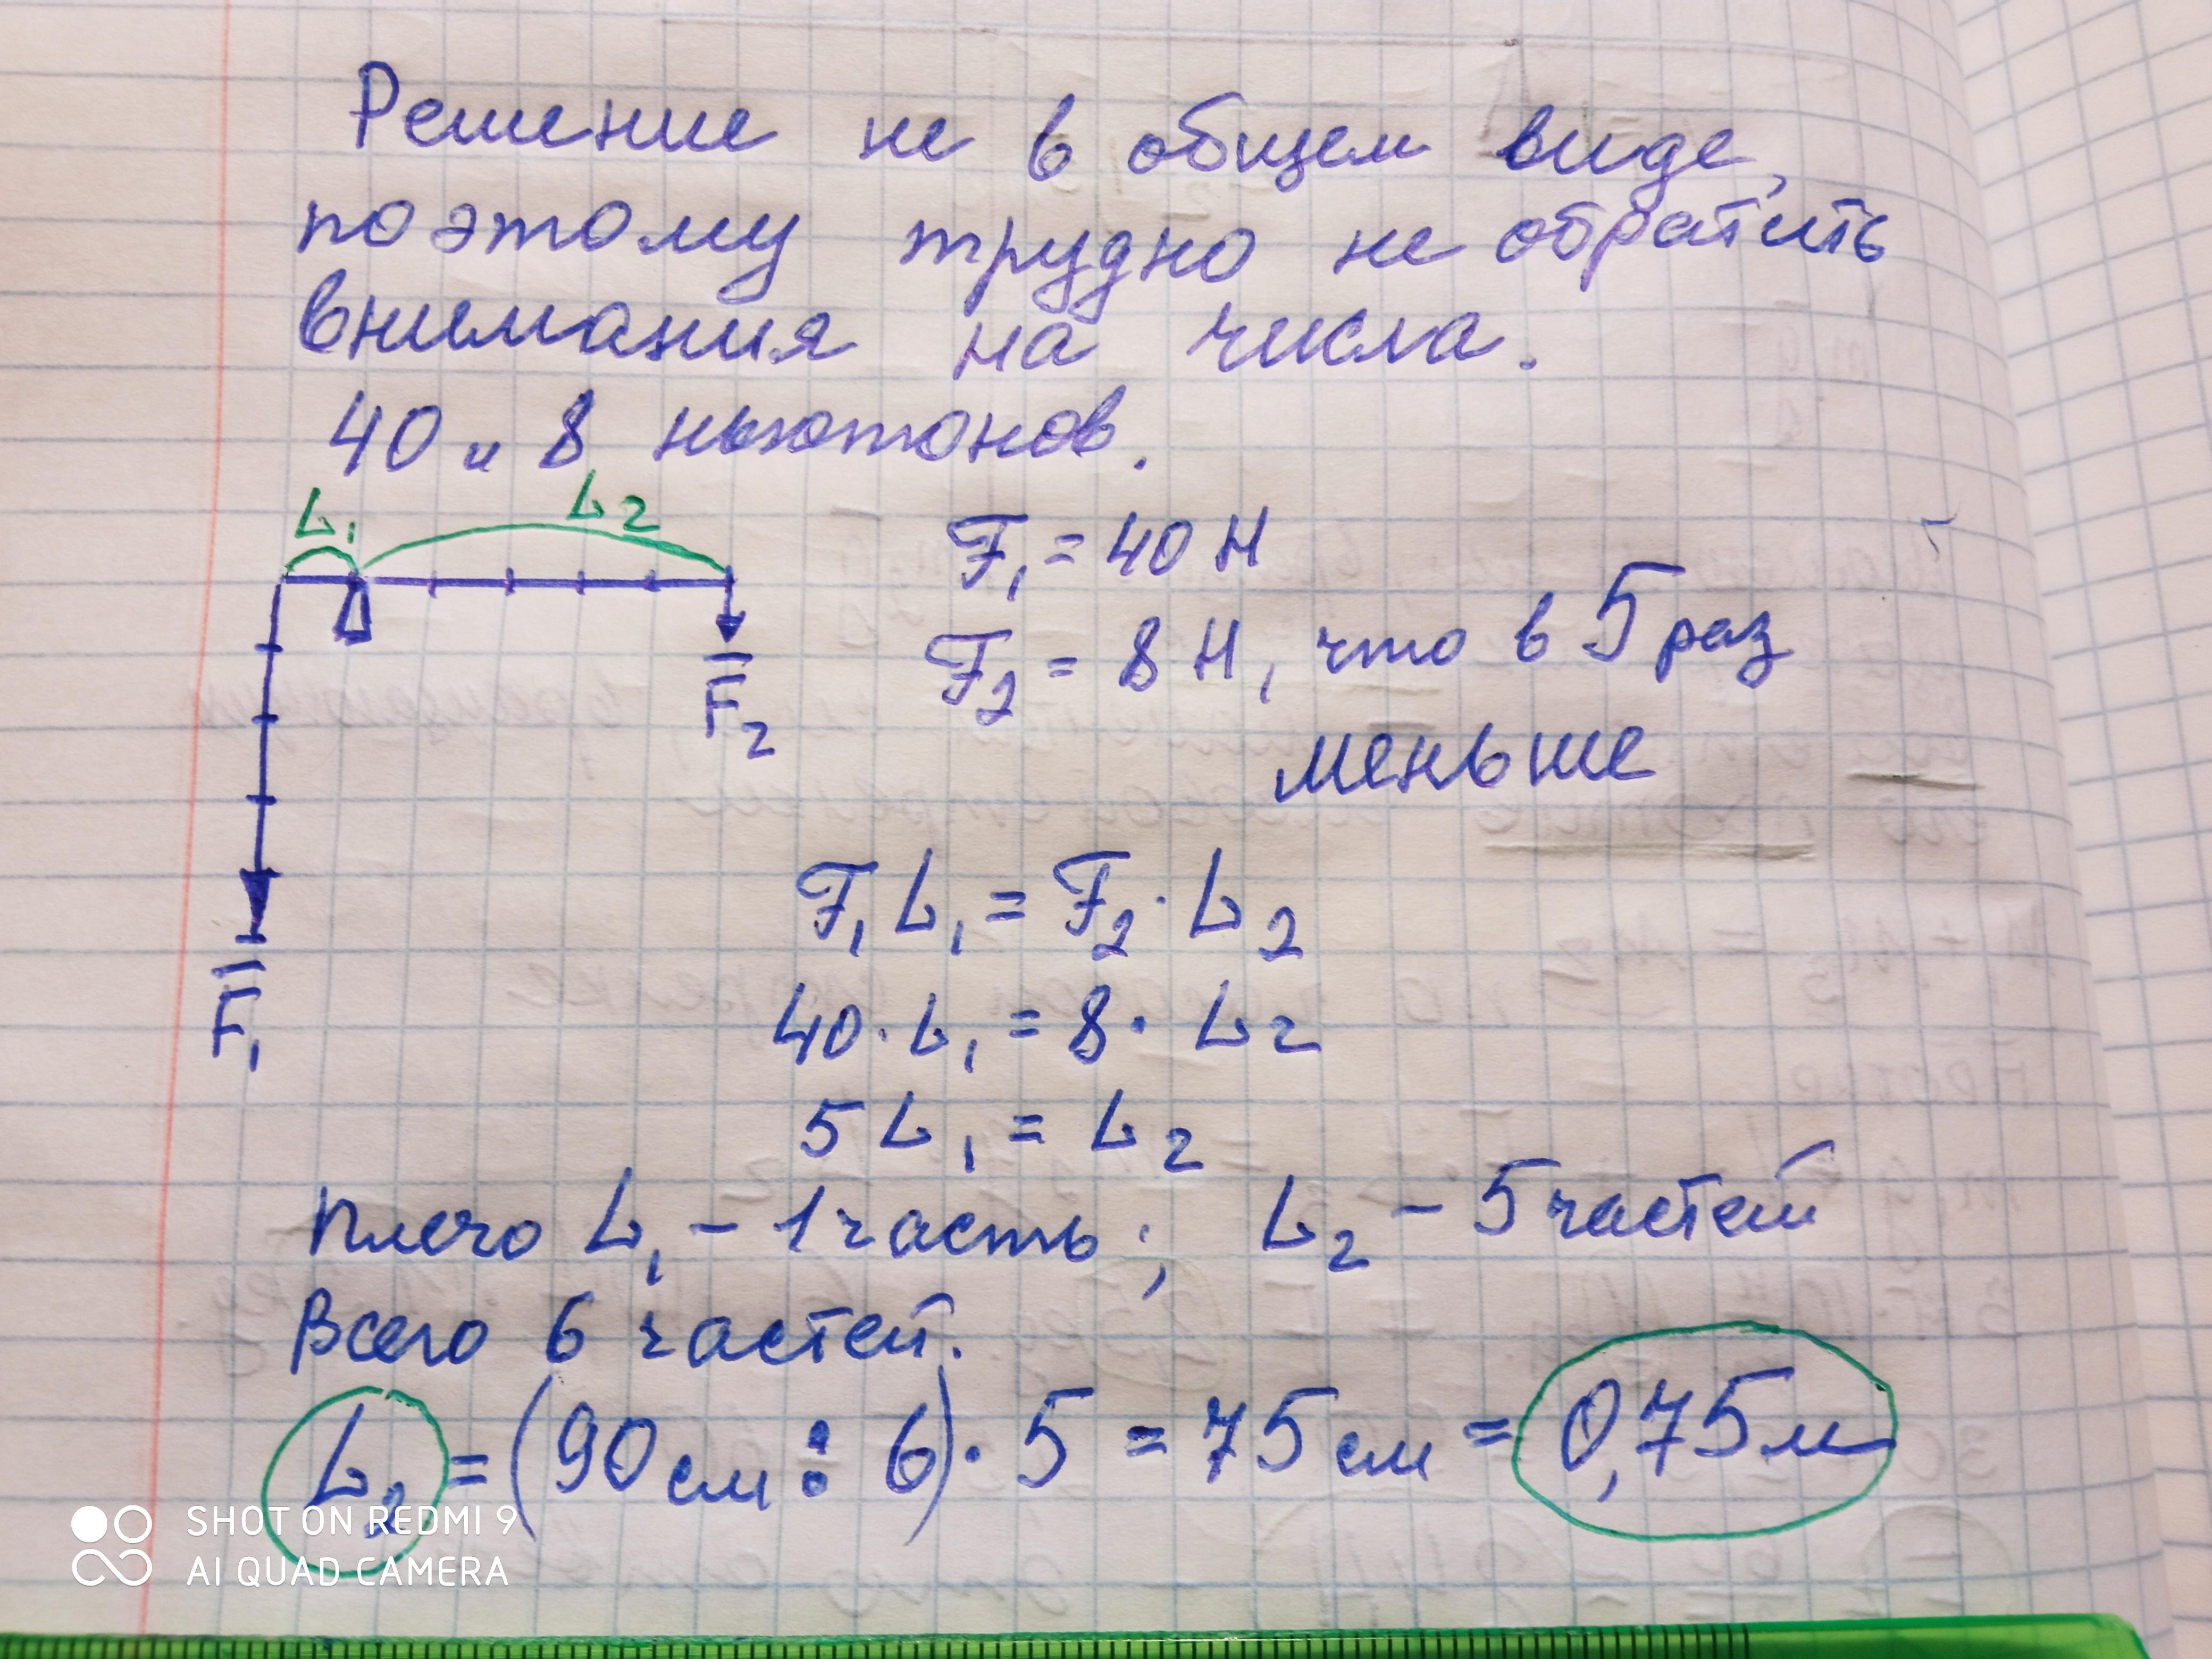 Решение не в общем виде,
поэтому трудно не обратить
внимания на числа.
40 и 8 ньютонов.
L₁ L₂
F₁ = 40 Н
F₂ = 8 Н, что в 5 раз
меньше
F₂
F₁
F₁ L₁ = F₂ · L₂
40 · L₁ = 8 · L₂
5 L₁ = L₂
Плечо L₁ – 1 часть; L₂ – 5 частей
Всего 6 частей.
L₂ = (90 см : 6) · 5 = 75 см = 0,75 м
SHOT ON REDMI 9
AI QUAD CAMERA